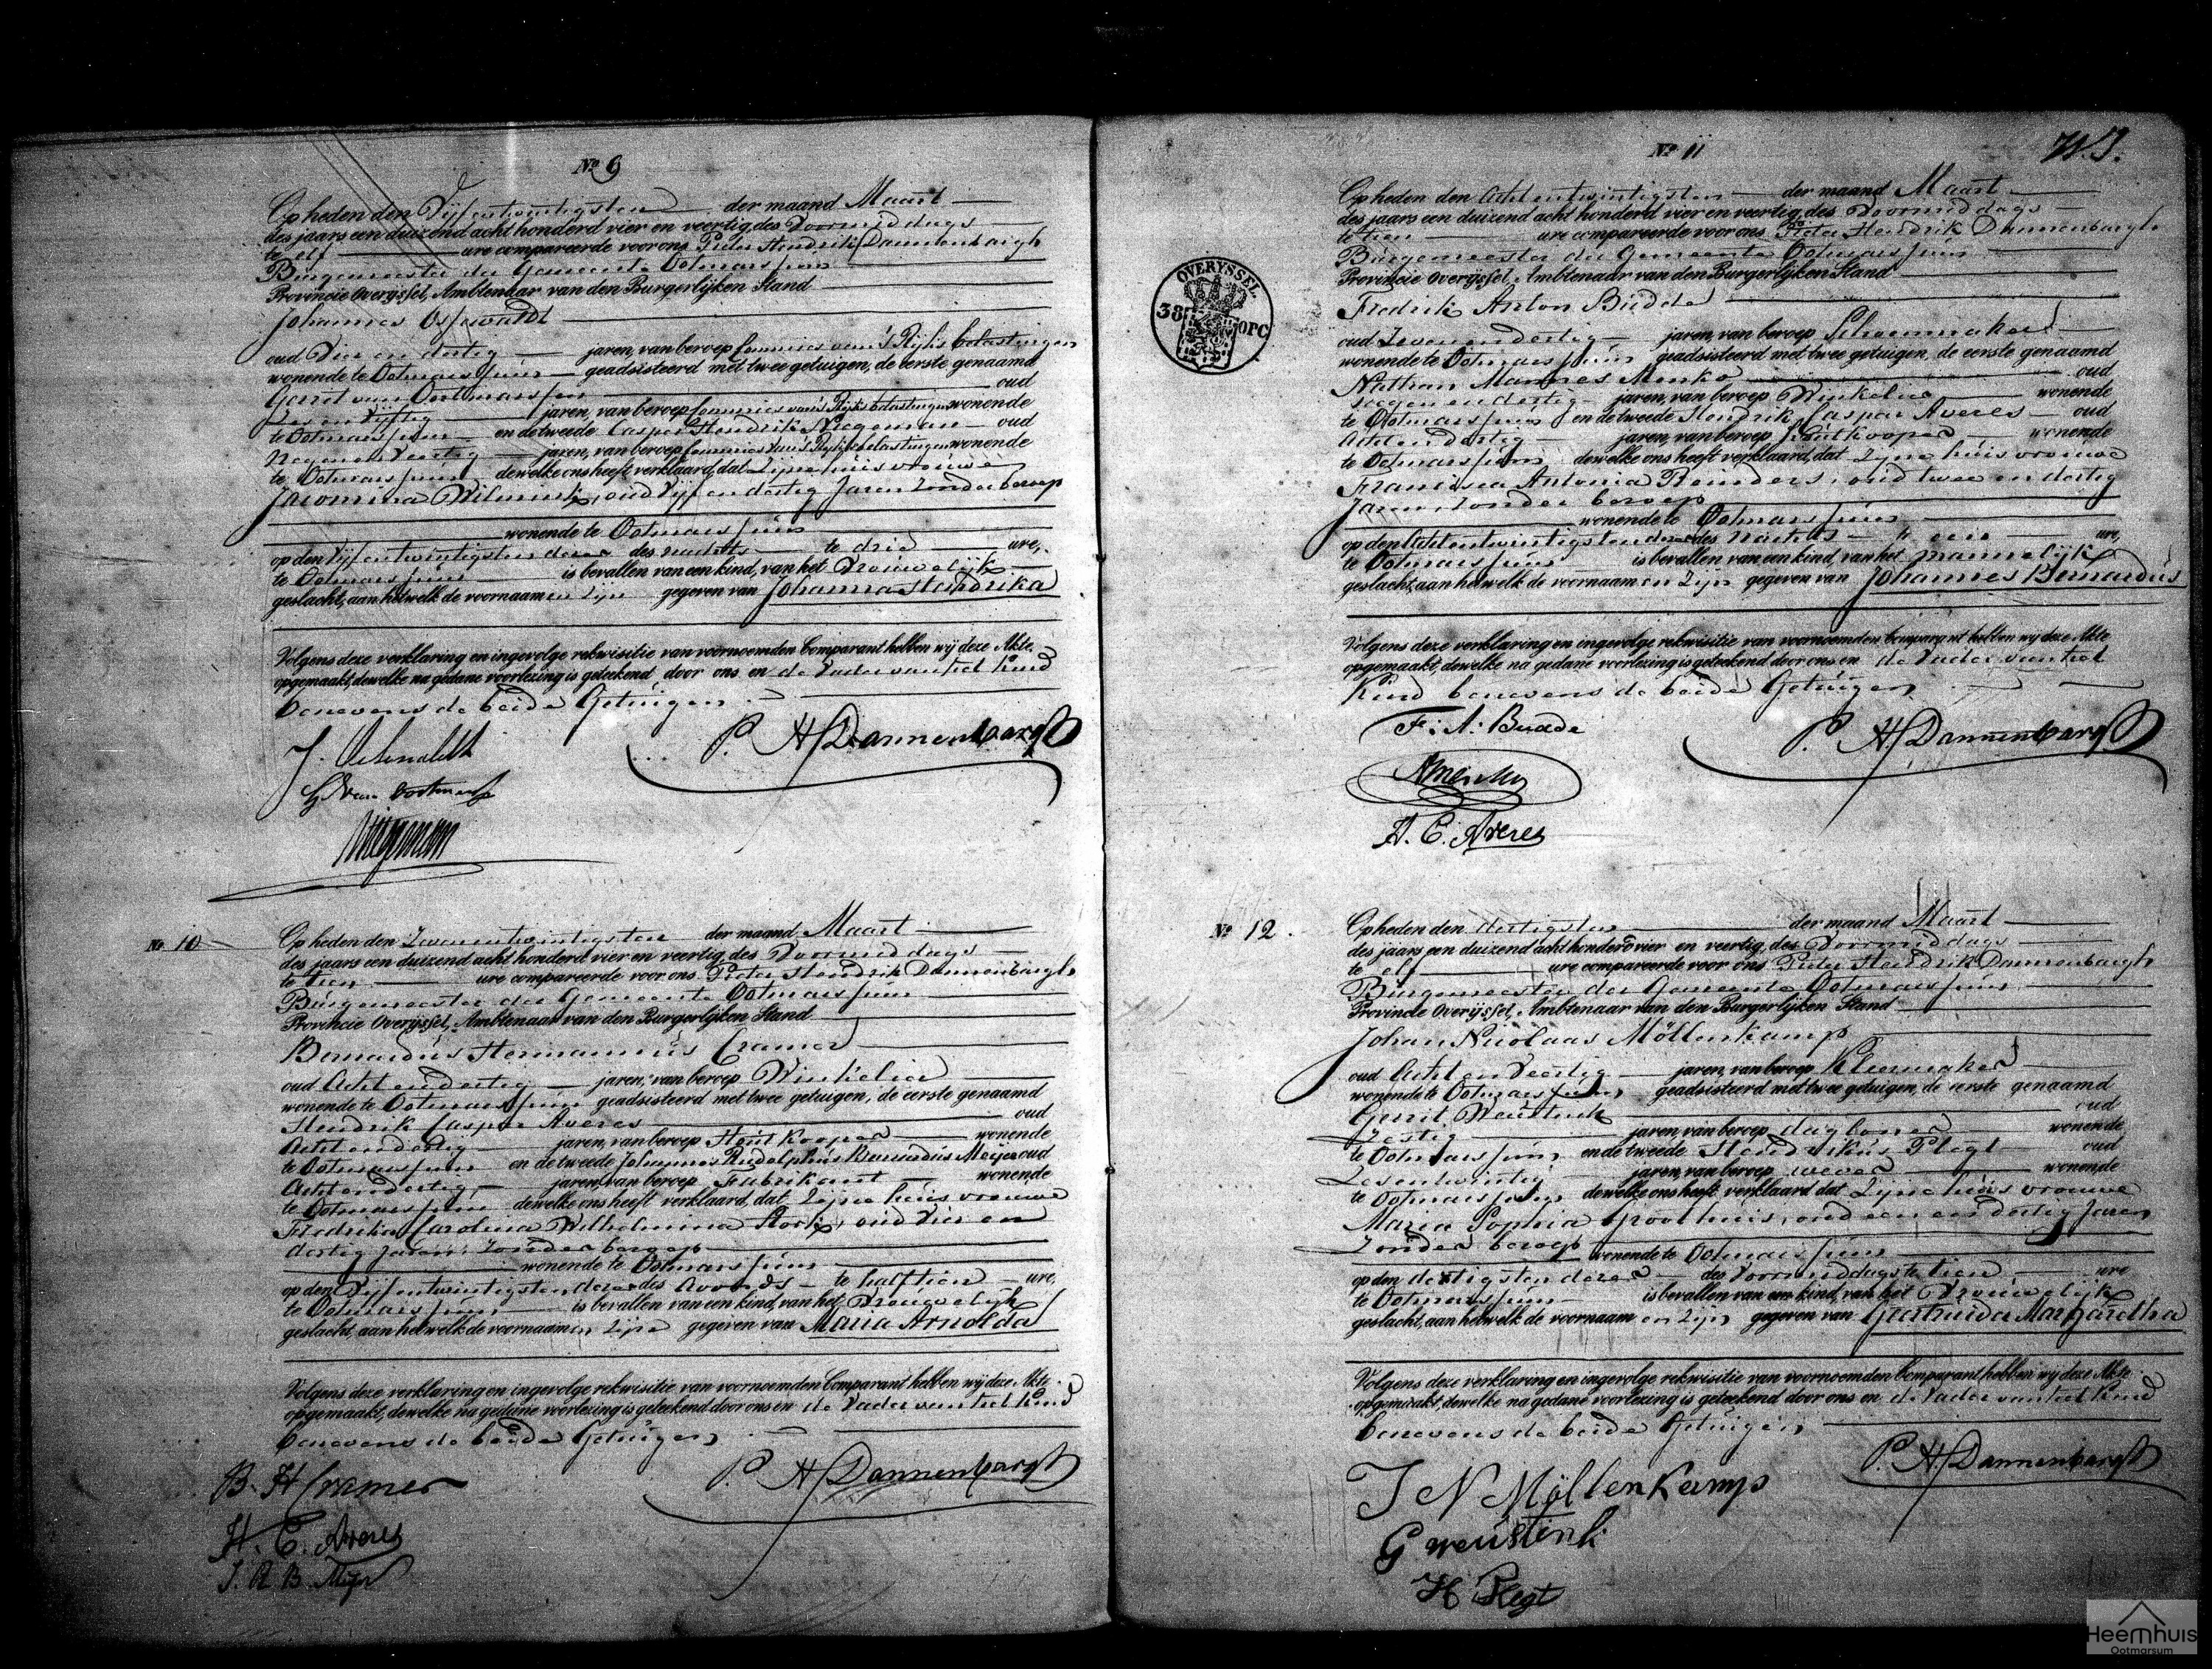 Nº 9
Op heden den Vijfentwintigsten der maand Maart
des jaars een duizend acht honderd vier en veertig, des Voormiddags
te elf ure compareerde voor ons Pieter Hendrik Dannenbargh
Burgemeester der Gemeente Ootmarssum
Provincie Overijssel, Ambtenaar van den Burgerlijken Stand
Johannes
oud Vier en dertig jaren, van beroep Commies van 's Rijks belastingen
wonende te Ootmarssum geadsisteerd met twee getuigen, de eerste genaamd
Gerret van Oortmarssen oud
Zes en Vijftig jaren, van beroep Commies van 's Rijks belastingen wonende
te Ootmarssum en de tweede Casper Hendrik Niegeman oud
Negen en Veertig jaren, van beroep Commies van 's Rijks belastingen wonende
te Ootmarssum dewelke ons heeft verklaard, dat Zijne huisvrouwe
Jacomina Wilmink, oud Vijf en dertig Jaren Zonder beroep
wonende te Ootmarssum
op den Vijfentwintigsten dezer des nachts te drie ure,
te Ootmarssum is bevallen van een kind, van het Vrouwelijk
geslacht, aan hetwelk de voornaamen zijn gegeven van Johanna Hendrika
Volgens deze verklaring en ingevolge rekwisitie van voornoemden Comparant hebben wij deze Akte
opgemaakt, dewelke na gedane voorlezing is geteekend door ons en de Vader van het Kind
benevens de beide Getuigen
P. H Dannenbargh
G van Oortmarssen
Niegeman
Nº 10
Op heden den Zevenentwintigsten der maand Maart
des jaars een duizend acht honderd vier en veertig, des Voormiddags
te tien ure compareerde voor ons Pieter Hendrik Dannenbargh
Burgemeester der Gemeente Ootmarssum
Provincie Overijssel, Ambtenaar van den Burgerlijken Stand
Bernardus Hermannus Cramer
oud Achtendertig jaren, van beroep Winkelier
wonende te Ootmarssum geadsisteerd met twee getuigen, de eerste genaamd
Hendrik Casper Averes oud
Achtendertig jaren, van beroep Houtkooper wonende
te Ootmarssum en de tweede Johannes Rudolphus Bernardus Meyer oud
Achtendertig jaren, van beroep Fabrikant wonende
te Ootmarssum dewelke ons heeft verklaard, dat Zijne huisvrouwe
Fredrika Carolina Wilhelmina Stork, oud Vier en
dertig Jaren, Zonder beroep
wonende te Ootmarssum
op den Vijfentwintigsten dezer des Avonds te half tien ure,
te Ootmarssum is bevallen van een kind, van het Vrouwelijk
geslacht, aan hetwelk de voornaamen zijn gegeven van Maria Arnolda
Volgens deze verklaring en ingevolge rekwisitie van voornoemden Comparant hebben wij deze Akte
opgemaakt, dewelke na gedane voorlezing is geteekend door ons en de Vader van het Kind
benevens de beide Getuigen
P. H Dannenbargh
B. H Cramer
H. C. Averes
J. R B. Meyer
Nº 11
OVERYSSEL
38 OPC
Op heden den Achtentwintigsten der maand Maart
des jaars een duizend acht honderd vier en veertig, des Voormiddags
te tien ure compareerde voor ons Pieter Hendrik Dannenbargh
Burgemeester der Gemeente Ootmarssum
Provincie Overijssel, Ambtenaar van den Burgerlijken Stand
Fredrik Anton Budde
oud Zevenendertig jaren, van beroep Schoenmaker
wonende te Ootmarssum geadsisteerd met twee getuigen, de eerste genaamd
Nathan Mannes Menko oud
Negenendertig jaren, van beroep Winkelier wonende
te Ootmarssum en de tweede Hendrik Caspar Averes oud
Achtendertig jaren, van beroep Houtkooper wonende
te Ootmarssum dewelke ons heeft verklaard, dat Zijne huisvrouwe
Francisca Antonia Reinders, oud twee en dertig
Jaren, Zonder beroep
wonende te Ootmarssum
op den Achtentwintigsten dezer des Nachts te een ure,
te Ootmarssum is bevallen van een kind, van het mannelijk
geslacht, aan hetwelk de voornaamen zijn gegeven van Johannes Bernardus
Volgens deze verklaring en ingevolge rekwisitie van voornoemden Comparant hebben wij deze Akte
opgemaakt, dewelke na gedane voorlezing is geteekend door ons en de Vader van het
Kind benevens de beide Getuigen
F: A: Budde
P. H Dannenbargh
H. C. Averes
Nº 12.
Op heden den dertigsten der maand Maart
des jaars een duizend acht honderd vier en veertig, des Voormiddags
te elf ure compareerde voor ons Pieter Hendrik Dannenbargh
Burgemeester der Gemeente Ootmarssum
Provincie Overijssel, Ambtenaar van den Burgerlijken Stand
Johan Nicolaas Möllenkamp
oud Acht en Veertig jaren, van beroep Kleermaker
wonende te Ootmarssum geadsisteerd met twee getuigen, de eerste genaamd
Gerrit Weustink oud
Zestig jaren, van beroep dagloner wonende
te Ootmarssum en de tweede Hendrikus Plegt oud
Zesentwintig jaren, van beroep wever wonende
te Ootmarssum dewelke ons heeft verklaard dat Zijne huisvrouwe
Maria Sophia Groothuis, oud een en dertig Jaren
Zonder beroep wonende te Ootmarssum
op den dertigsten dezer des Voormiddags te tien ure
te Ootmarssum is bevallen van een kind, van het Vrouwelijk
geslacht, aan hetwelk de voornaamen zijn gegeven van Geertruida Margaretha
Volgens deze verklaring en ingevolge rekwisitie van voornoemden Comparant hebben wij deze Akte
opgemaakt, dewelke na gedane voorlezing is geteekend door ons en de Vader van het Kind
benevens de beide Getuigen
P. H Dannenbargh
J N Möllenkamp
G weustink
H Plegt
Heemhuis
Ootmarsum